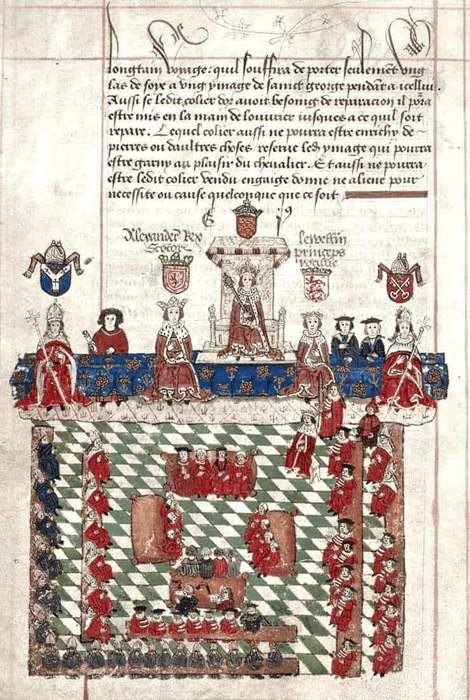 longtain voyage: quil souffira de porter seulement vng
las de soye a vng ymage de sainct george pendāt a icellui.
Aussi se ledit colier dor auoit besoing de reparacion il pōra
estre mis en la main de louurier iusques a ce quil soit
repare. Lequel colier aussi ne pourra estre enrichy de
pierres ou daultres choses reserue led ymage qui pourra
estre garny au plaisir du cheualier. Et aussi ne pourra
estre ledit colier vendu engaige donne ne aliene pour
necessite ou cause quelconque que ce soit
Alexander Rex
Scotor
lewellin
princeps
wallie